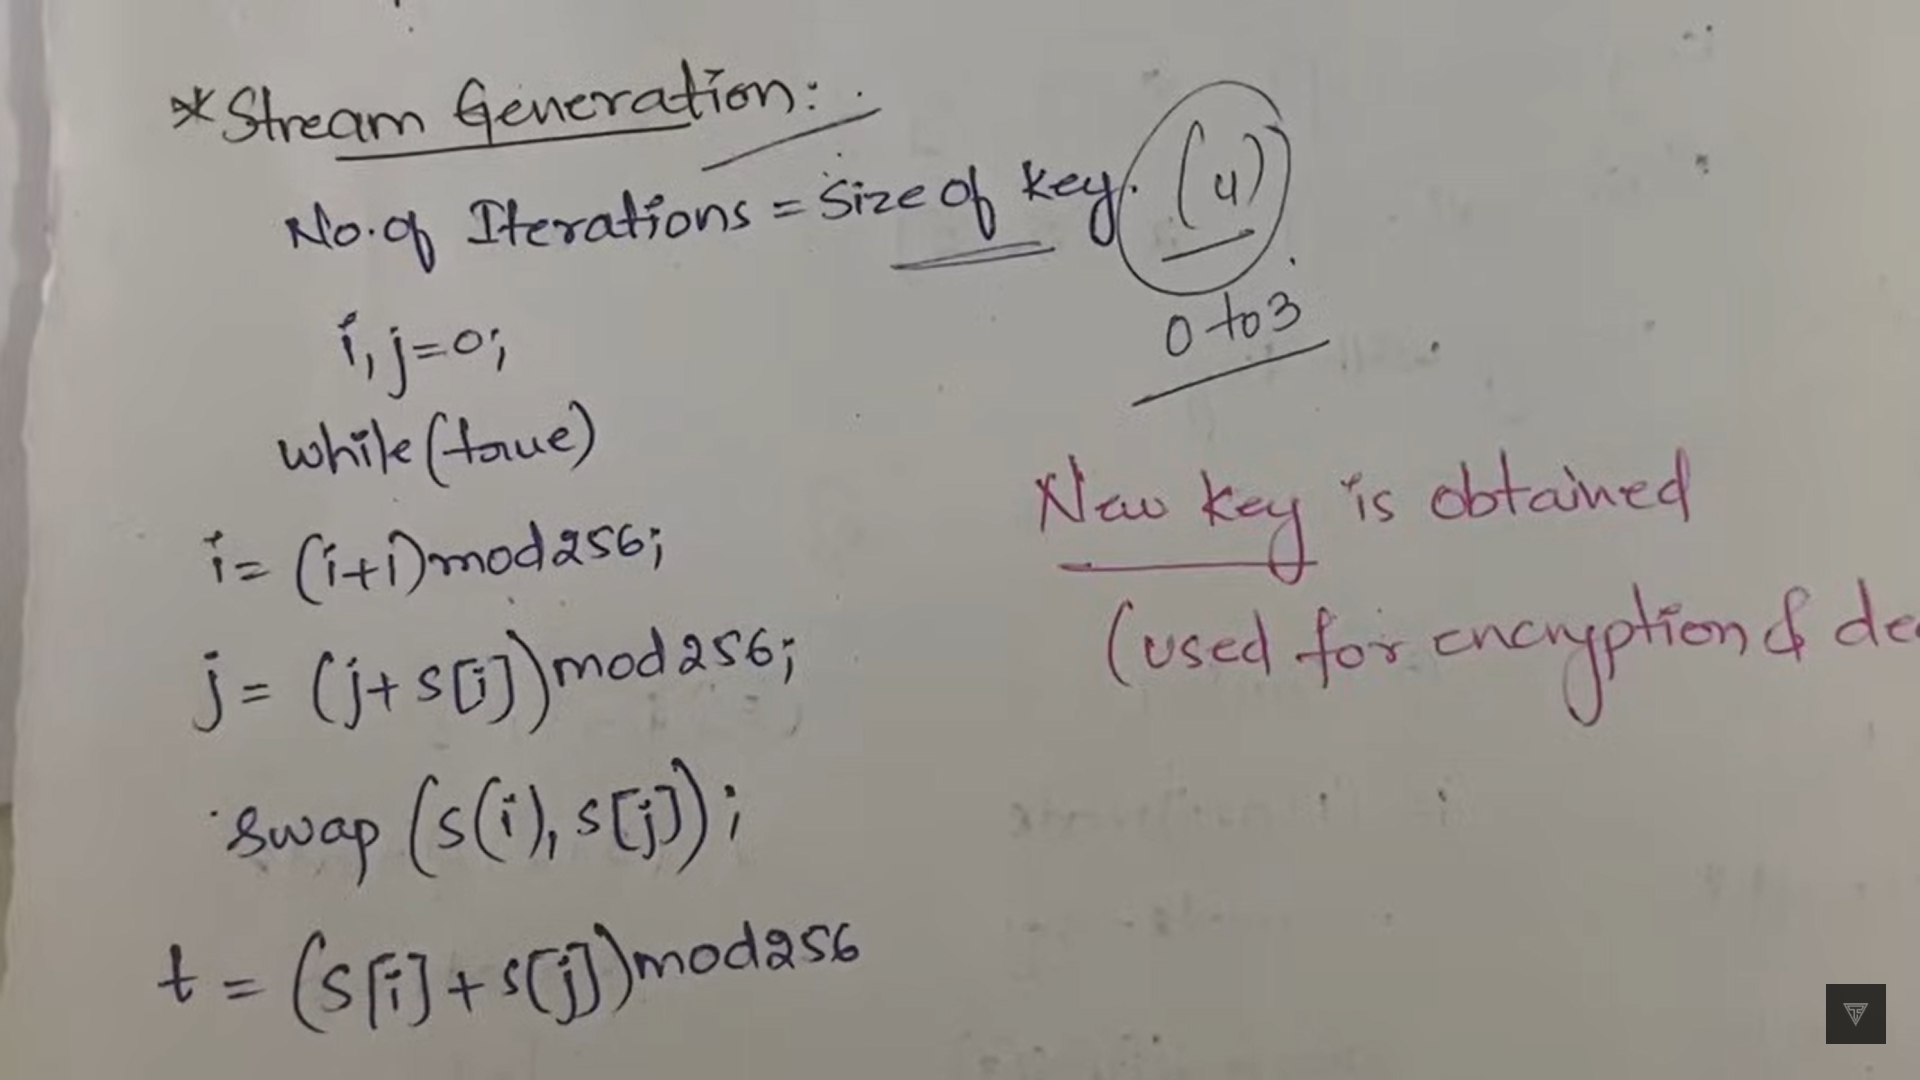 *Stream Generation:
No. of Iterations = Size of key. (4)
0 to 3
i, j=0;
while(true)
i= (i+i)mod256;
j= (j+s[i])mod256;
swap (s(i), s[j]);
t = (s[i]+s[j])mod256
New key is obtained
(used for encryption & de